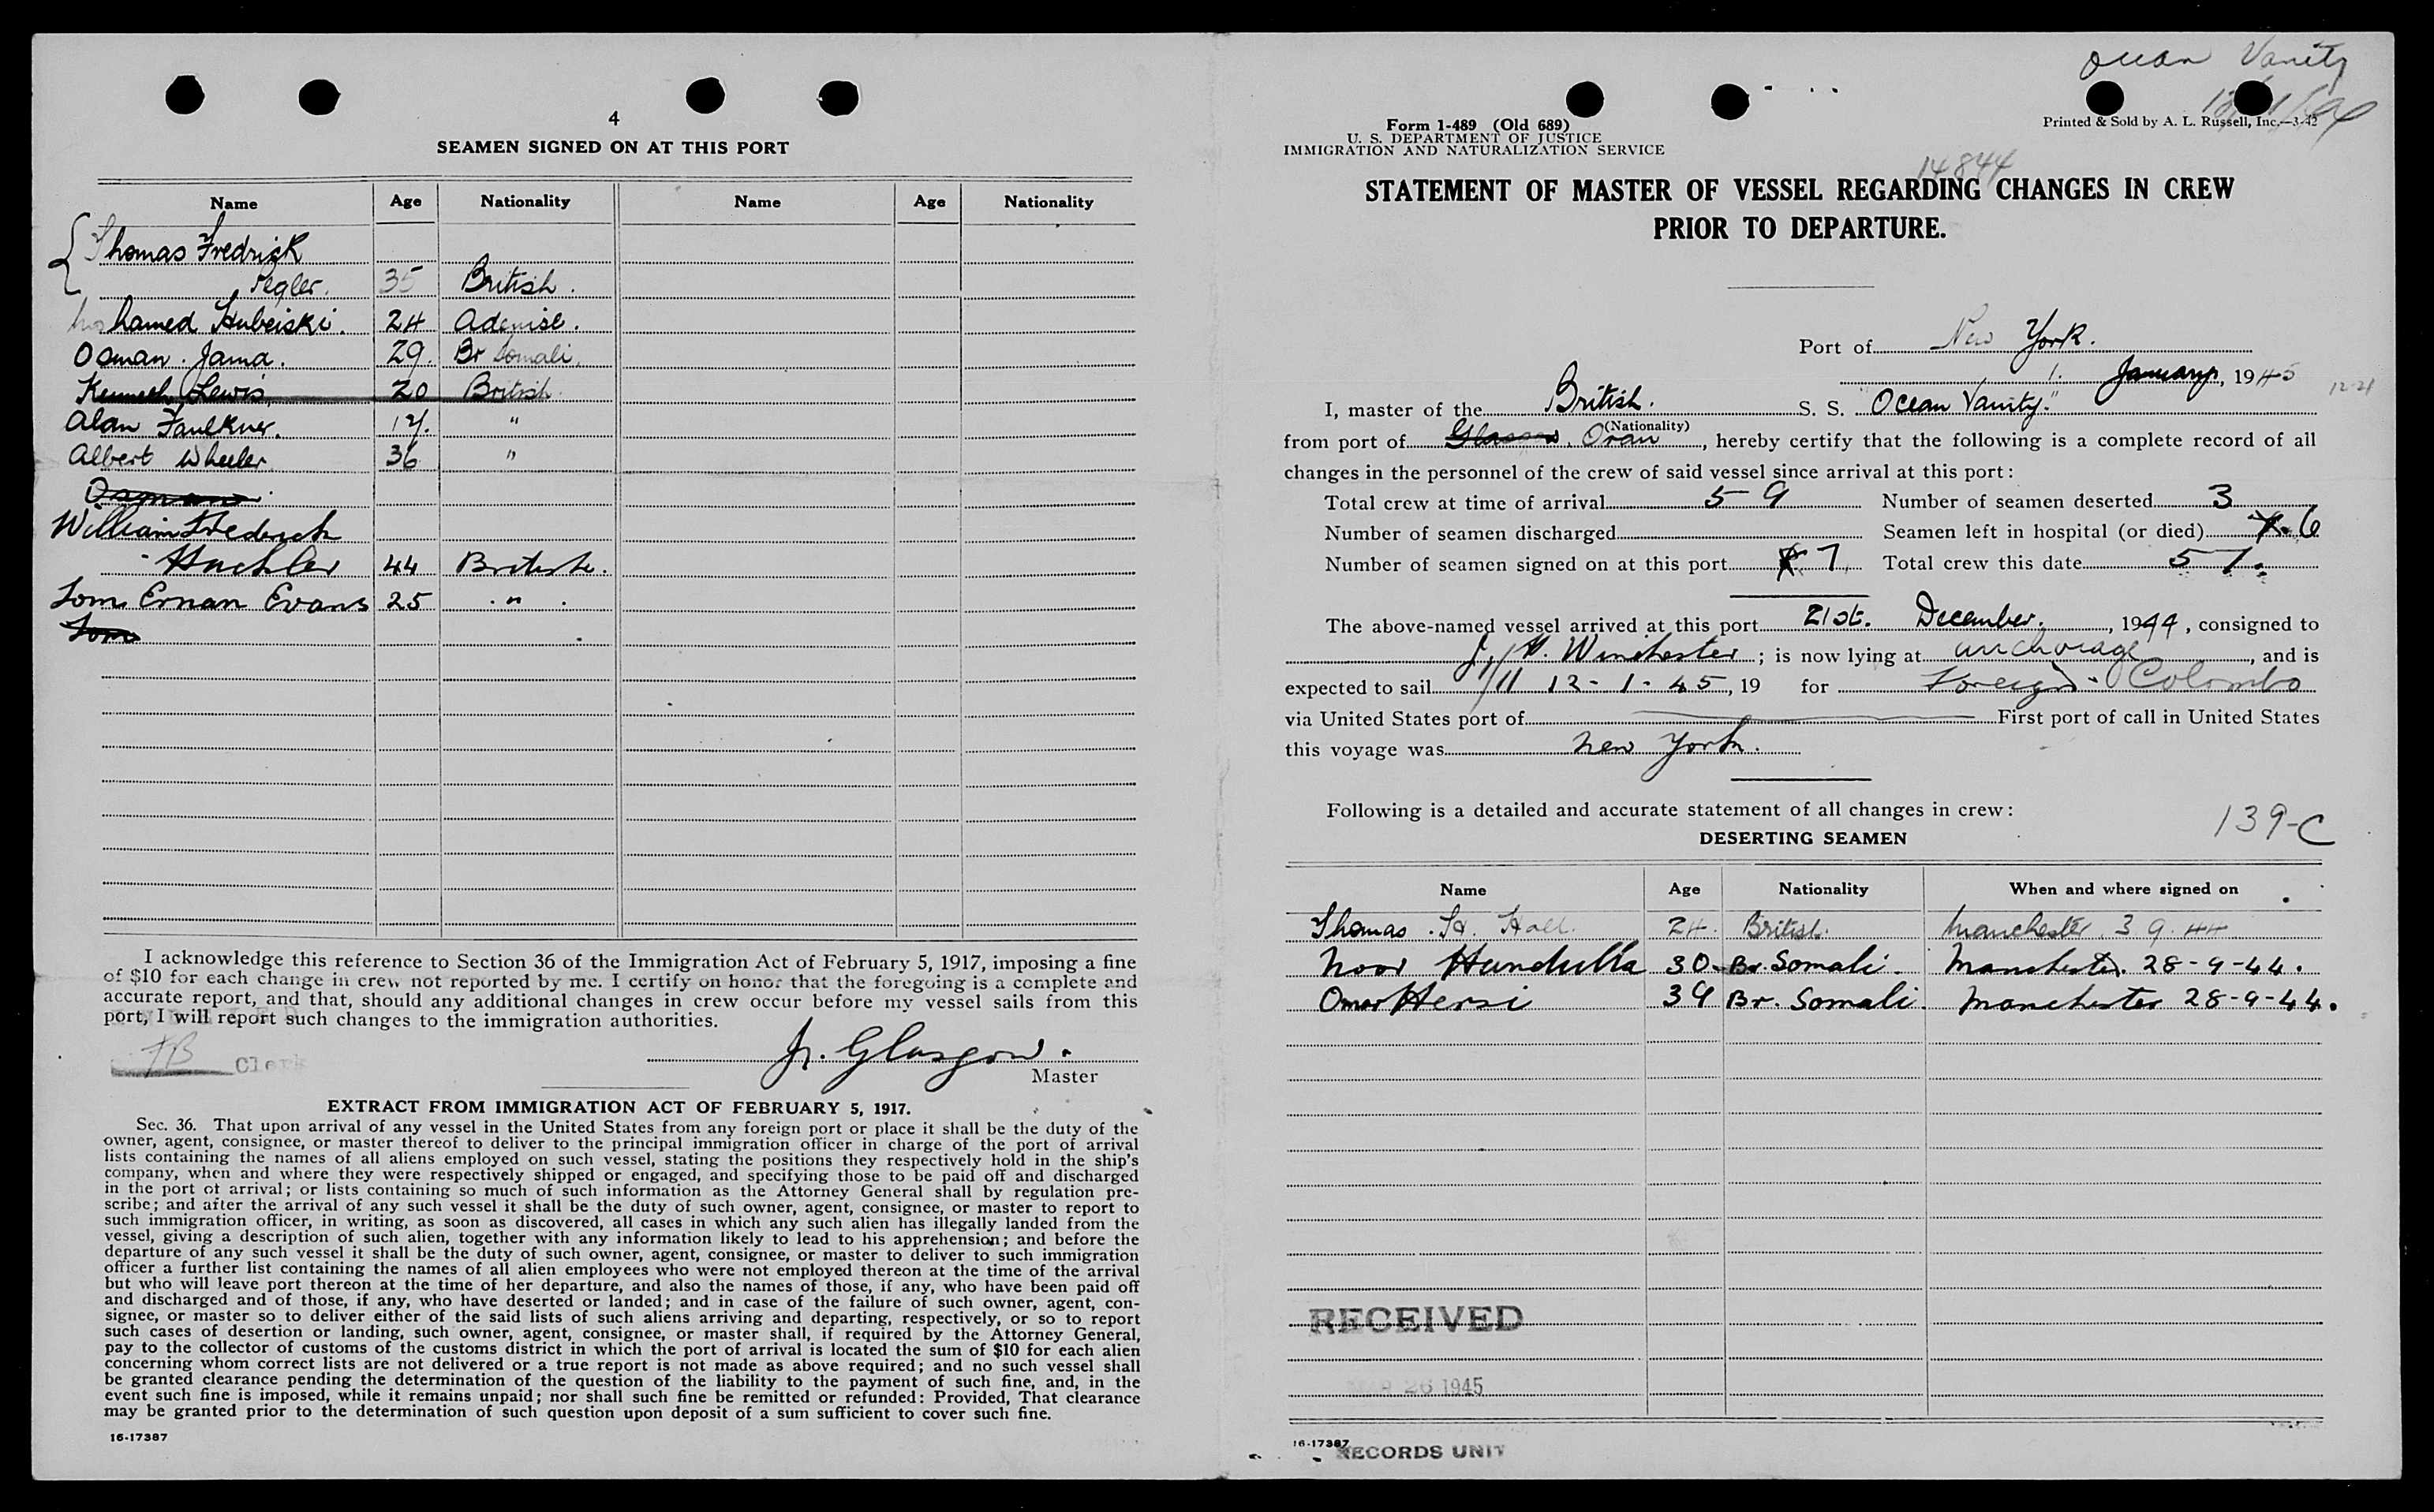 4
SEAMEN SIGNED ON AT THIS PORT
Name Age Nationality Name Age Nationality
Thomas Fredrick
Pegler. 35 British.
Mohamed Hubeiski. 24 Adenise.
Osman. Jama. 29. Br Somali.
Kenneth Lewis. 20 British.
Alan Faulkner. 17. "
Albert Wheeler 36 "
William Frederick
44 British.
Tom Ernan Evans 25 "
Tom
I acknowledge this reference to Section 36 of the Immigration Act of February 5, 1917, imposing a fine
of $10 for each change in crew not reported by me. I certify on honor that the foregoing is a complete and
accurate report, and that, should any additional changes in crew occur before my vessel sails from this
port, I will report such changes to the immigration authorities.
Clerk
Glasgow.
Master
EXTRACT FROM IMMIGRATION ACT OF FEBRUARY 5, 1917.
Sec. 36. That upon arrival of any vessel in the United States from any foreign port or place it shall be the duty of the
owner, agent, consignee, or master thereof to deliver to the principal immigration officer in charge of the port of arrival
lists containing the names of all aliens employed on such vessel, stating the positions they respectively hold in the ship's
company, when and where they were respectively shipped or engaged, and specifying those to be paid off and discharged
in the port of arrival; or lists containing so much of such information as the Attorney General shall by regulation pre-
scribe; and after the arrival of any such vessel it shall be the duty of such owner, agent, consignee, or master to report to
such immigration officer, in writing, as soon as discovered, all cases in which any such alien has illegally landed from the
vessel, giving a description of such alien, together with any information likely to lead to his apprehension; and before the
departure of any such vessel it shall be the duty of such owner, agent, consignee, or master to deliver to such immigration
officer a further list containing the names of all alien employees who were not employed thereon at the time of the arrival
but who will leave port thereon at the time of her departure, and also the names of those, if any, who have been paid off
and discharged and of those, if any, who have deserted or landed; and in case of the failure of such owner, agent, con-
signee, or master so to deliver either of the said lists of such aliens arriving and departing, respectively, or so to report
such cases of desertion or landing, such owner, agent, consignee, or master shall, if required by the Attorney General,
pay to the collector of customs of the customs district in which the port of arrival is located the sum of $10 for each alien
concerning whom correct lists are not delivered or a true report is not made as above required; and no such vessel shall
be granted clearance pending the determination of the question of the liability to the payment of such fine, and, in the
event such fine is imposed, while it remains unpaid; nor shall such fine be remitted or refunded: Provided, That clearance
may be granted prior to the determination of such question upon deposit of a sum sufficient to cover such fine.
16-17387
Ocean Vanity
Form 1-489 (Old 689)
U. S. DEPARTMENT OF JUSTICE
IMMIGRATION AND NATURALIZATION SERVICE
Printed & Sold by A. L. Russell, Inc.—3-42
14844
STATEMENT OF MASTER OF VESSEL REGARDING CHANGES IN CREW
PRIOR TO DEPARTURE.
Port of New York.
1. January, 1945
12-21
I, master of the British. S. S. "Ocean Vanity."
(Nationality)
from port of Glasgow. Oran, hereby certify that the following is a complete record of all
changes in the personnel of the crew of said vessel since arrival at this port:
Total crew at time of arrival 59 Number of seamen deserted 3
Number of seamen discharged Seamen left in hospital (or died) 6
Number of seamen signed on at this port 7 Total crew this date 57.
The above-named vessel arrived at this port 21st. December, 1944, consigned to
J. H. Winchester; is now lying at anchorage, and is
expected to sail 12-1-45, 19 for Foreign - Colombo
via United States port of First port of call in United States
this voyage was New York.
Following is a detailed and accurate statement of all changes in crew:
139-C
DESERTING SEAMEN
Name Age Nationality When and where signed on
Thomas. H. Hall. 24. British. Manchester. 3 9. 44
Noor Hundulla 30 Br. Somali. Manchester. 28-9-44.
Omar Hersi 39 Br. Somali. Manchester 28-9-44.
RECEIVED
26 1945
16-17387
RECORDS UNIT